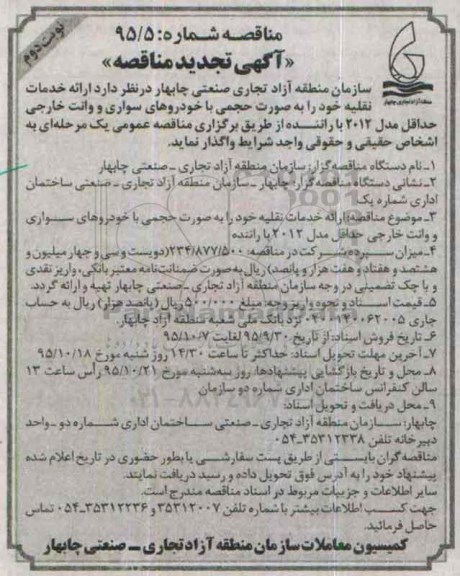 نوبت دوم
مناقصه شماره: ۹۵/۵
«آگهی تجدید مناقصه»
سازمان منطقه آزاد تجاری صنعتی چابهار درنظر دارد ارائه خدمات
نقلیه خود را به صورت حجمی با خودروهای سواری و وانت خارجی
حداقل مدل ۲۰۱۲ با راننده از طریق برگزاری مناقصه عمومی یک مرحله‌ای به
اشخاص حقیقی و حقوقی واجد شرایط واگذار نماید.
۱ـ نام دستگاه مناقصه‌گزار: سازمان منطقه آزاد تجاری ـ صنعتی چابهار
۲ـ نشانی دستگاه مناقصه‌گزار: چابهار ـ سازمان منطقه آزاد تجاری ـ صنعتی ساختمان
اداری شماره یک
۳ـ موضوع مناقصه: ارائه خدمات نقلیه خود را به صورت حجمی با خودروهای سـواری
و وانت خارجی حداقل مدل ۲۰۱۲ با راننده
۴ـ میزان سپرده شرکت در مناقصه: ۲۳۴/۸۷۷/۵۰۰ (دویست و سی و چهار میلیون و
هشتصد و هفتاد و هفت هزار و پانصد) ریال به صورت ضمانتنامه معتبر بانکی، واریز نقدی
و یا چک تضمینی در وجه سازمان منطقه آزاد تجاری ـ صنعتی چابهار تهیه و ارائه گردد.
۵ـ قیمت اسناد و نحوه واریز وجه: مبلغ ۵۰۰/۰۰۰ ریال (پانصد هزار) ریال به حساب
جاری نزد بانک ملی شعبه منطقه آزاد چابهار.
۶ـ تاریخ فروش اسناد: از تاریخ ۹۵/۹/۳۰ لغایت ۹۵/۱۰/۷
۷ـ آخرین مهلت تحویل اسناد: حداکثر تا ساعت ۱۴/۳۰ روز شنبه مورخ ۹۵/۱۰/۱۸
۸ـ محل و تاریخ بازگشایی پیشنهادها: روز سه‌شنبه مورخ ۹۵/۱۰/۲۱ رأس ساعت ۱۳
سالن کنفرانس ساختمان اداری شماره دو سازمان
۹ـ محل دریافت و تحویل اسناد:
چابهار: سـازمان منطقه آزاد تجاری ـ صنعتی سـاختمان اداری شـماره دو ـ واحد
دبیرخانه تلفن ۳۵۳۱۲۲۳۸ـ۰۵۴
مناقصه‌گران بایستی از طریق پست سفارشی یا بطور حضوری در تاریخ اعلام شده
پیشنهاد خود را به آدرس فوق تحویل داده و رسید دریافت نمایند.
سایر اطلاعات و جزییات مربوط در اسناد مناقصه مندرج است.
جهت کسب اطلاعات بیشتر با شماره تلفن ۳۵۳۱۲۰۰۷ و ۳۵۳۱۲۲۳۶ـ۰۵۴ تماس
حاصل فرمائید.
کمیسیون معاملات سازمان منطقه آزاد تجاری ــ صنعتی چابهار